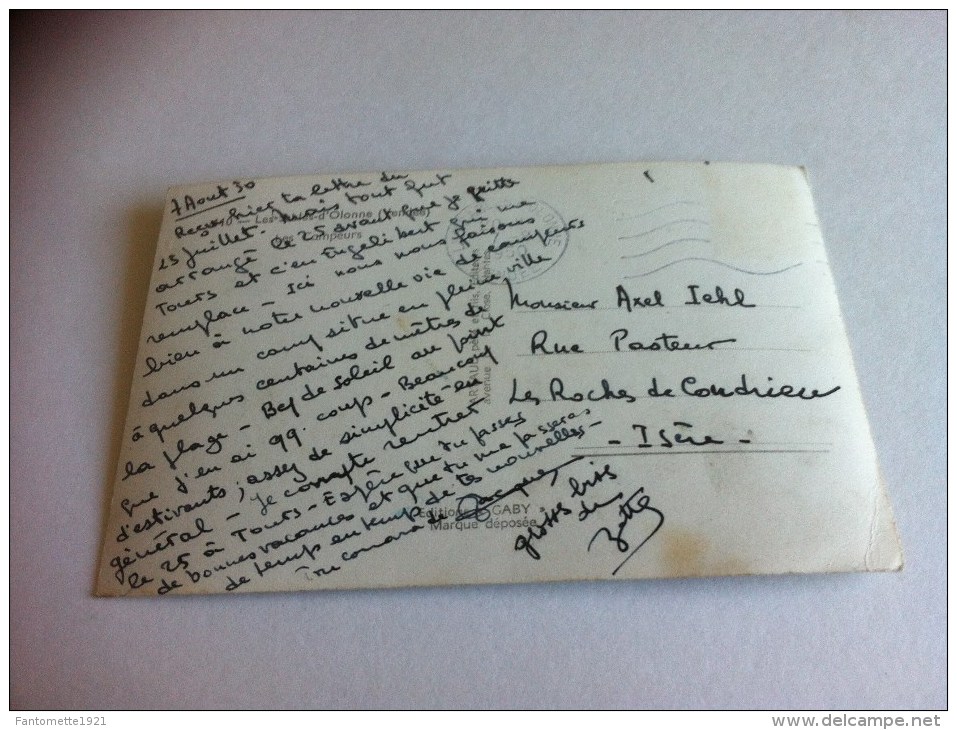 7 Aout 50
Reçu hier ta lettre du
25 juillet. Mais tout fut
arrangé le 25 avant que je quitte
Tours et c'est Engelibert qui me
remplace - Ici nous nous faisons
bien à notre nouvelle vie de campeurs
dans un camp situé en pleine ville
à quelques centaines de mètres de
la plage - Bcp de soleil au point
que j'en ai 99. coup - Beaucoup
d'estivants ; assez de simplicité en
général - Je compte rentrer
le 25 à Tours - Espère que tu passes
de bonnes vacances et que tu me passeras
de temp en temp de tes nouvelles -
Les Sables-d'Olonne (Vendée)
Les Campeurs
Editions GABY
Marque déposée
Monsieur Axel Iehl
Rue Pasteur
Les Roches de Condrieu
- Isère -
Fantometle1921
delcampe.net